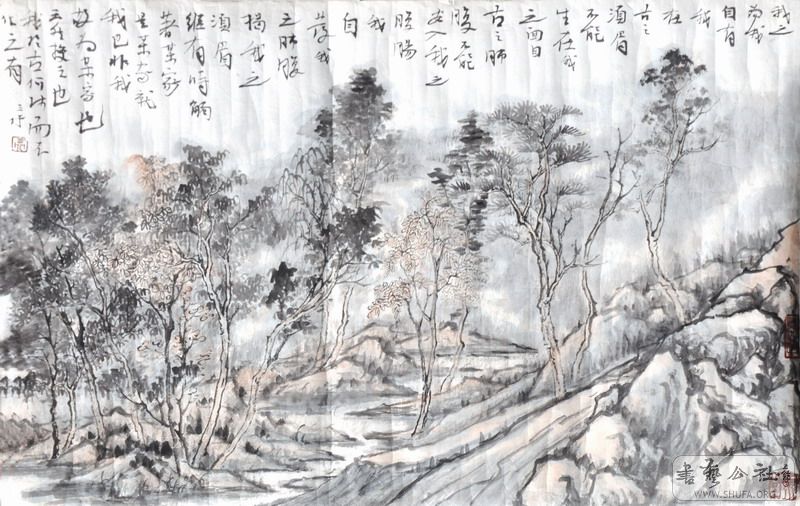 我之
為我
自有
我
在
古之
須眉
不能
生在我
之面目
古之肺
腹不能
安入我之
腹腸
我
自
發我
之肺腹
揭我之
須眉
縱有時觸
著某家
是某家就
我也非我
故為某家也
天然授之也
我於古何師而不
化之有
書藝公社
WWW.SHUFA.ORG